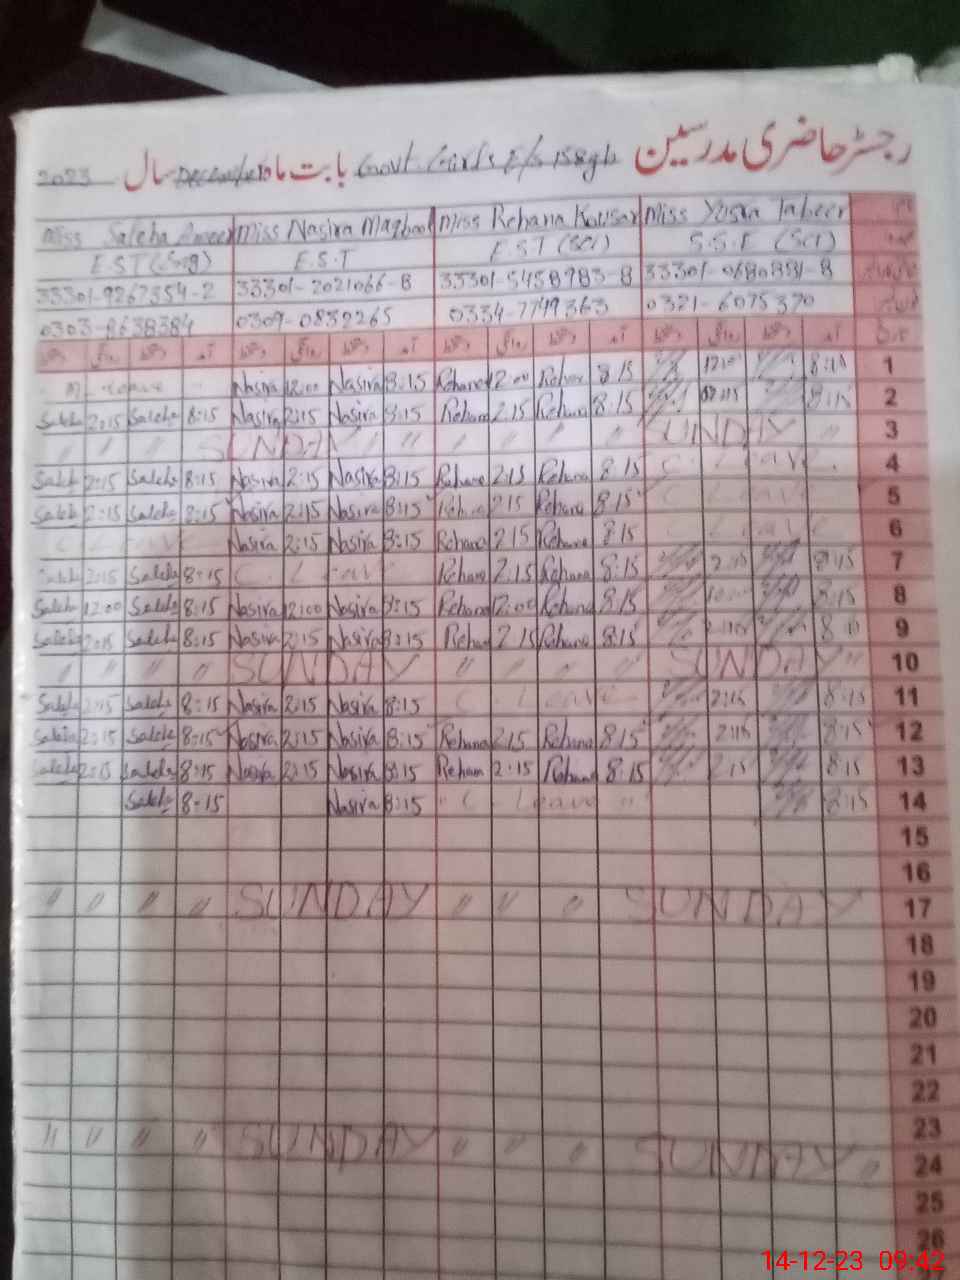 رجسٹر حاضری مدرسین Govt. Girls E/S 158gb بابت ماہ December سال 2023
Miss Saleha Ameer Miss Nasira Maqbool Miss Rehana Kousar Miss Yusra Tabeer
E.S.T E.S.T E.S.T (SCI) S.S.E (SCI)
33301-9267554-2 33301-2021066-8 33301-5458983-8
0303-8638384 0309-0832265 0334-7749363 0321-6075370
leave Nasira 12:00 Nasira 8:15 Rehana 12:00 Rehana 8:15 8:10 1
Saleha 2:15 Saleha 8:15 Nasira 2:15 Nasira 8:15 Rehana 2:15 Rehana 8:15 8:15 2
" " " " SUNDAY " " " " " SUNDAY " 3
Saleha 2:15 Saleha 8:15 Nasira 2:15 Nasira 8:15 Rehana 2:15 Rehana 8:15 C. Leave 4
Saleha 2:15 Saleha 8:15 Nasira 2:15 Nasira 8:15 Rehana 2:15 Rehana 8:15 C Leave 5
C Leave Nasira 2:15 Nasira 8:15 Rehana 2:15 Rehana 8:15 C Leave 6
Saleha 2:15 Saleha 8:15 C. Leave Rehana 2:15 Rehana 8:15 2:15 8:15 7
Saleha 12:00 Saleha 8:15 Nasira 12:00 Nasira 8:15 Rehana 12:00 Rehana 8:15 8:15 8
Saleha 2:15 Saleha 8:15 Nasira 2:15 Nasira 8:15 Rehana 2:15 Rehana 8:15 9
" " " " SUNDAY " " " " SUNDAY " 10
Saleha 2:15 Saleha 8:15 Nasira 2:15 Nasira 8:15 C Leave 2:15 8:15 11
Saleha 2:15 Saleha 8:15 Nasira 2:15 Nasira 8:15 Rehana 2:15 Rehana 8:15 2:15 8:15 12
Saleha 2:15 Saleha 8:15 Nasira 2:15 Nasira 8:15 Rehana 2:15 Rehana 8:15 2:15 8:15 13
Saleha 8:15 Nasira 8:15 " C - Leave " 8:15 14
15
16
" " " " SUNDAY " " " SUNDAY 17
18
19
20
21
22
23
" " " " SUNDAY " " " SUNDAY " 24
25
26
14-12-23 09:42